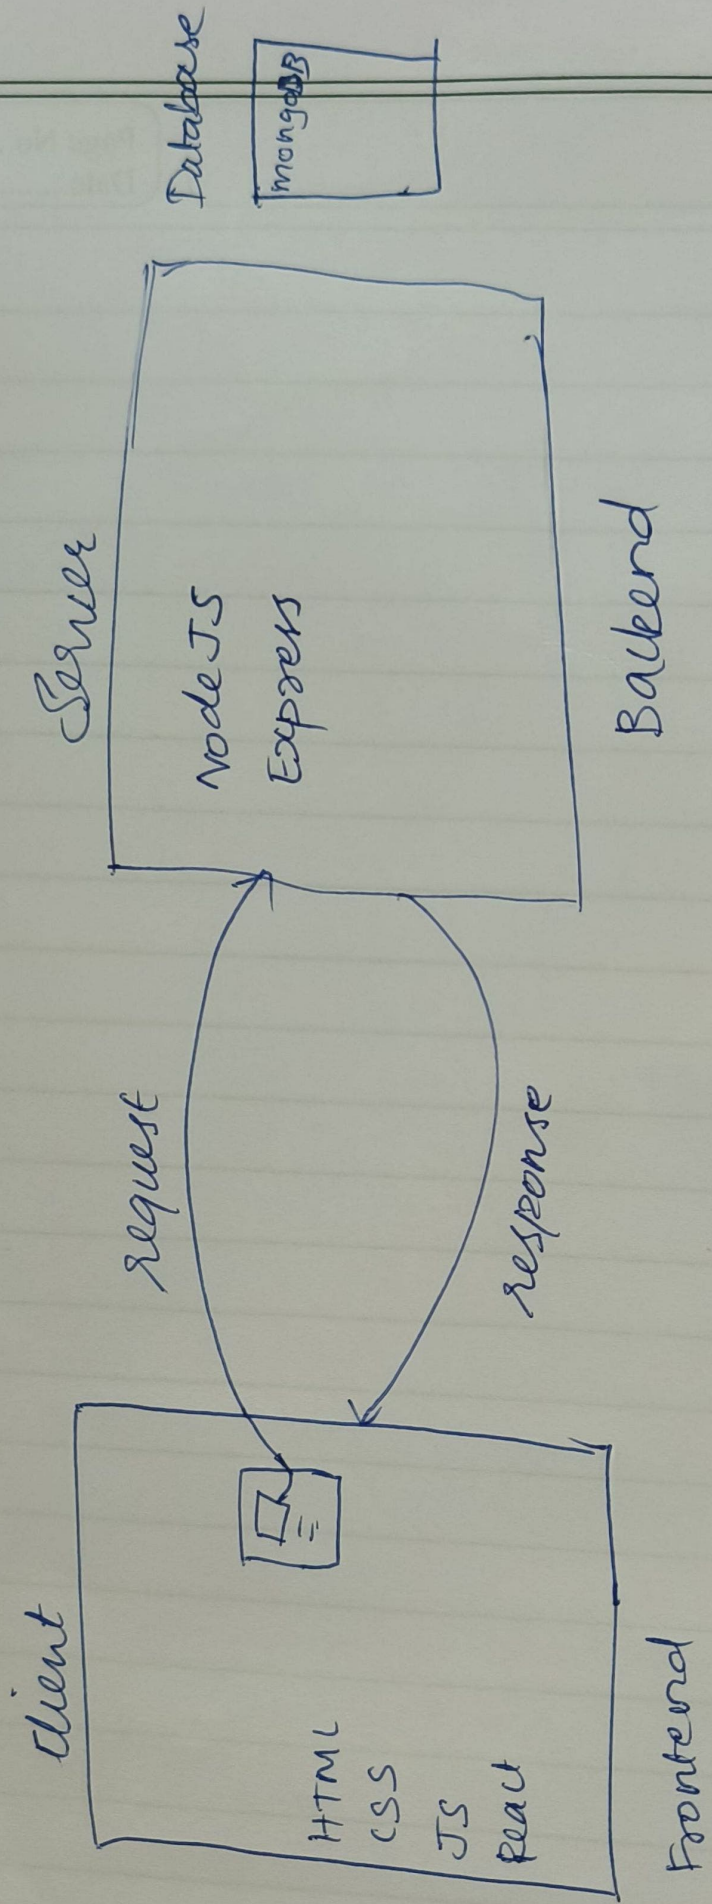 Client
HTML
CSS
JS
React
Frontend
request
response
Server
NodeJS
Express
Backend
Database
mongoDB
Page No.
Date